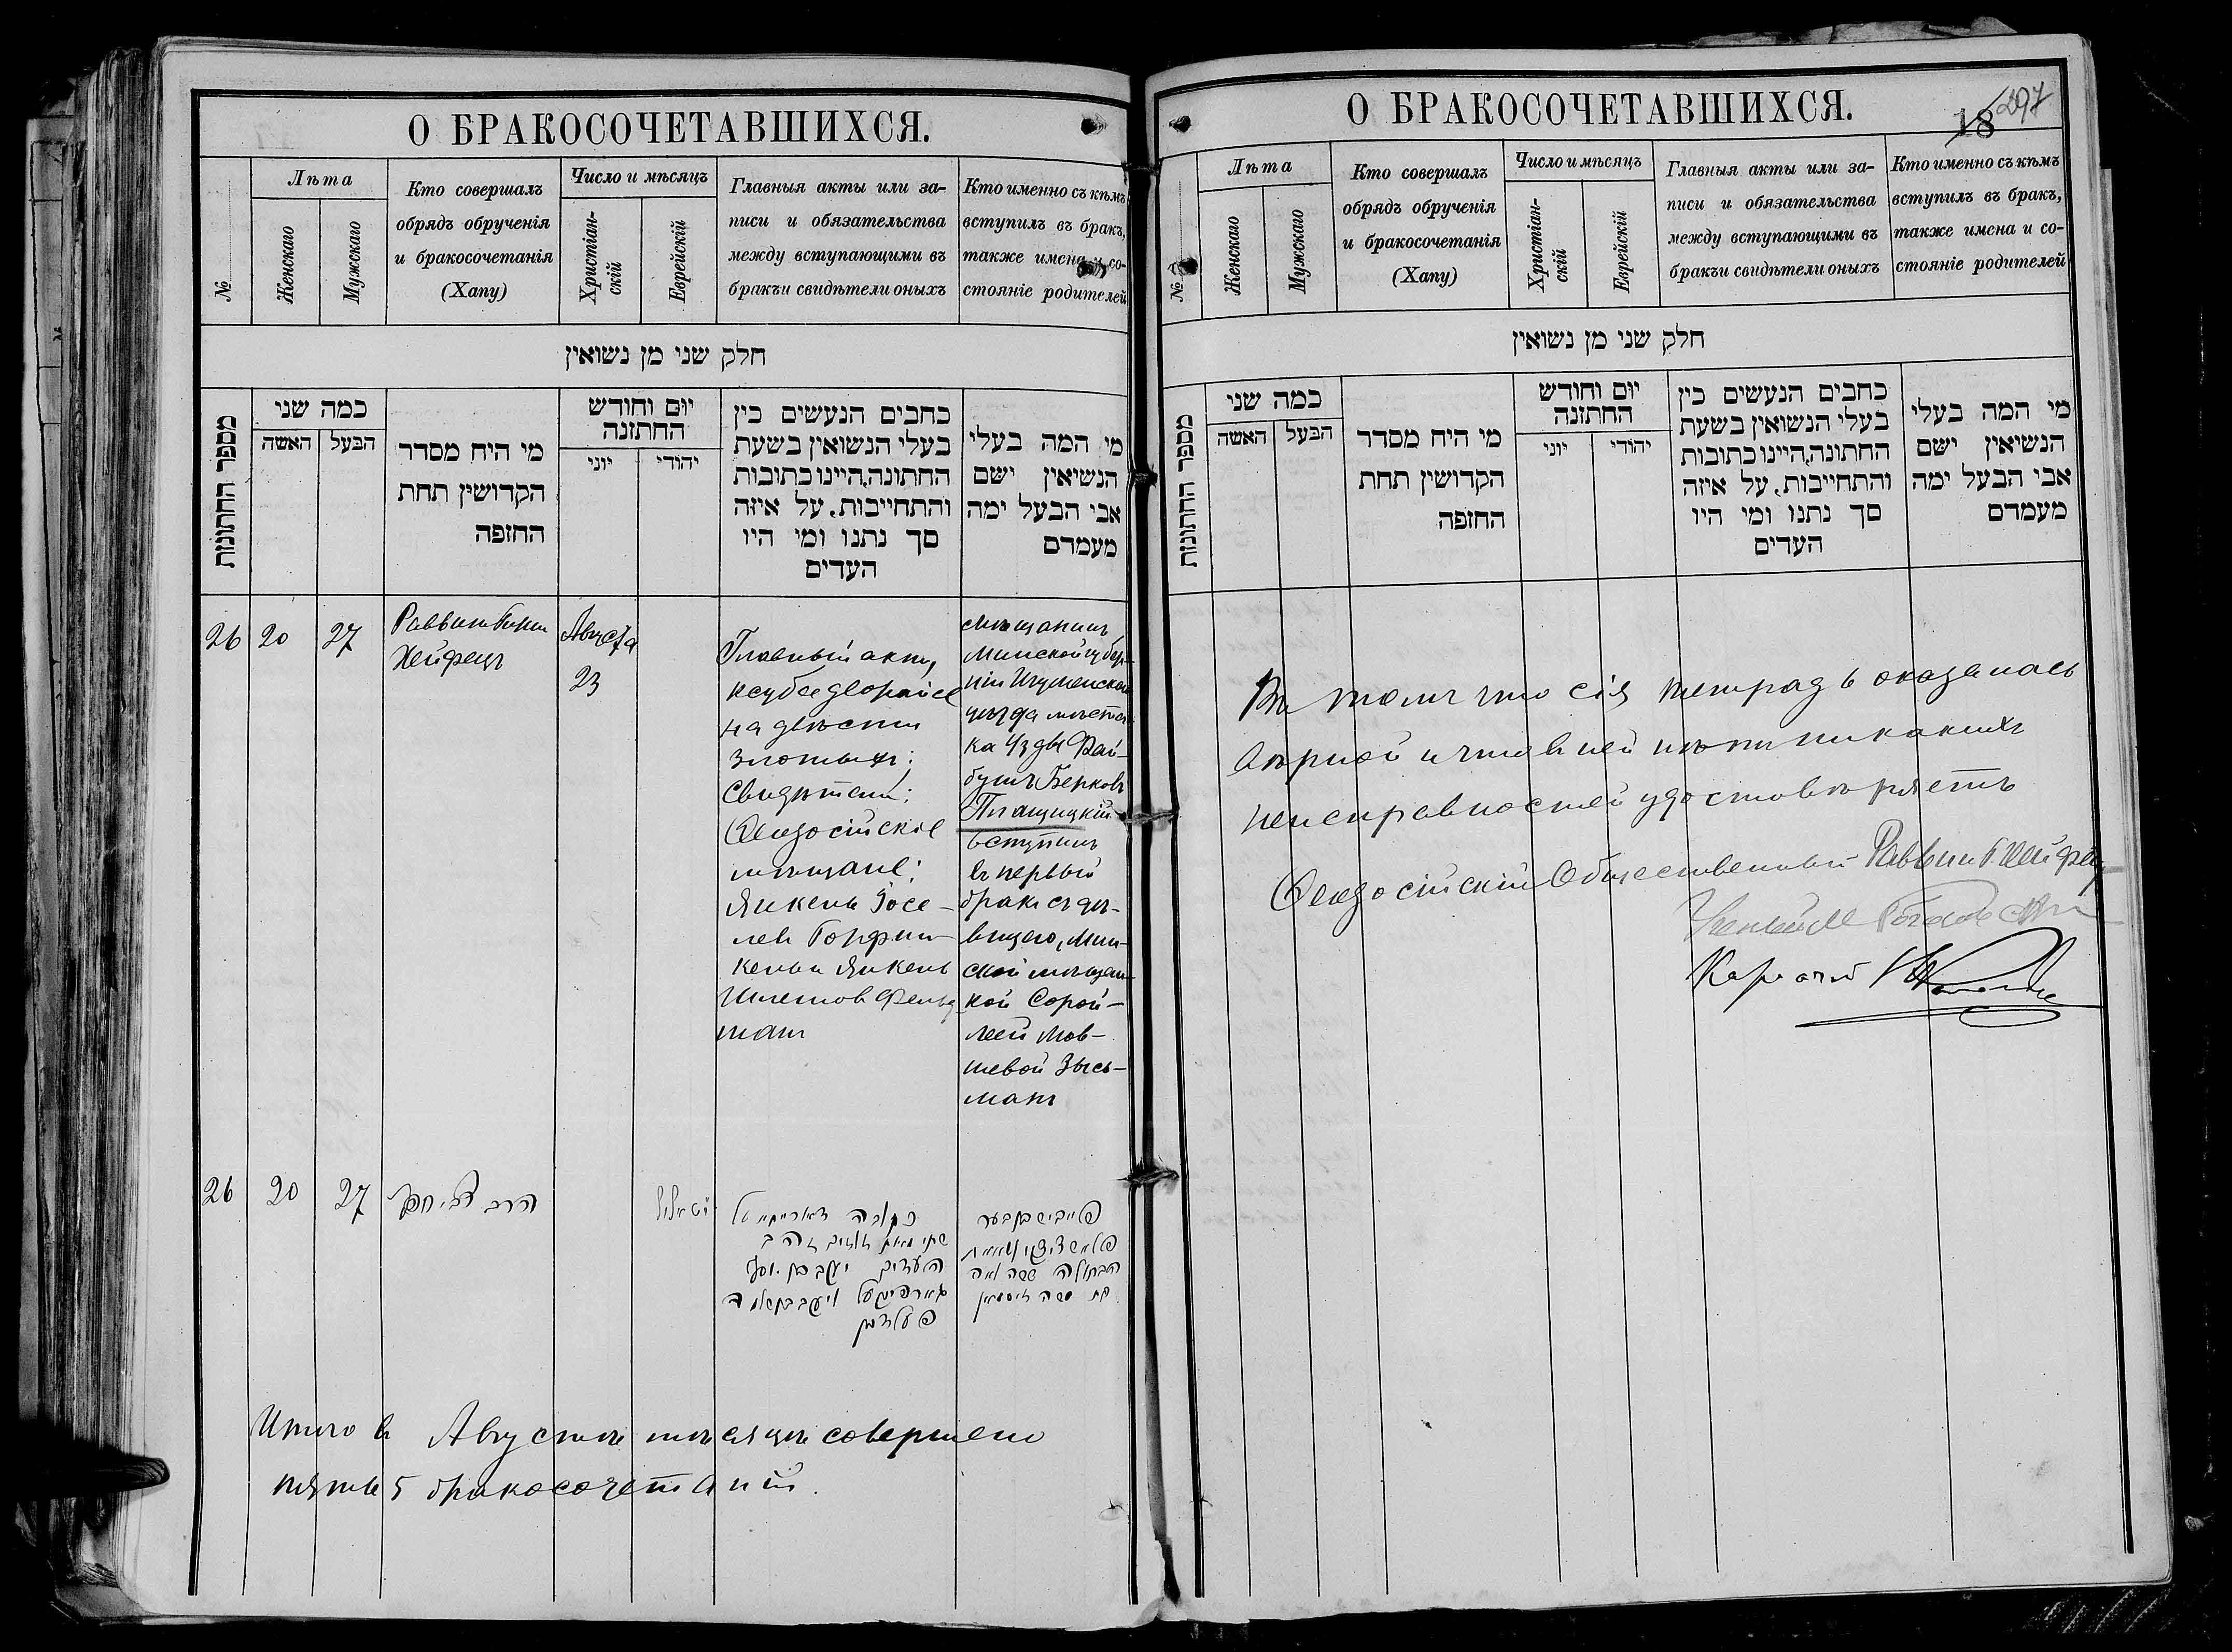 О БРАКОСОЧЕТАВШИХСЯ.
№
Лѣта
Женскаго
Мужскаго
Кто совершалъ
обрядъ обрученія
и бракосочетанія
(Хапу)
Число и мѣсяцъ
Христіан-
скій
Еврейскій
Главныя акты или за-
писи и обязательства
между вступающими въ
бракъ и свидѣтели оныхъ
Кто именно съ кѣмъ
вступилъ въ бракъ,
также имена и со-
стояніе родителей
חלק שני מן נשואין
מספר החתונות
כמה שני
האשה
הבעל
מי היח מסדר
הקדושין תחת
החופה
יום וחודש
החתונה
יוני
יהודי
כחבים הנעשים כין
בעלי הנשואין בשעת
החתונה,היינו כתובות
והתחייבות. על איזה
סך נתנו ומי היו
העדים
מי המה בעלי
הנשיאין ישם
אבי הבעל ימה
מעמדם
26
20
27
Раввин
Хейфецъ
Августа
23
Главный актъ,
ксубе деорайсе
на двѣсти
злотыхъ;
Свидѣтели:
Ѳеодосійскіе
мѣщане:
Янкель Іосе-
лев Горфин-
кель и Янкель
Шлемов Фельд
манъ
мѣщанинъ
Минской губер-
ніи Игуменскаго
уѣзда мѣстеч-
ка Узды Фай-
бушъ Берковъ
Плащицкій
вступилъ
въ первый
бракъ съ дѣ-
вицею, Мин-
ской мѣщан-
кой Сорой-
Леей Мов-
шевой Зысь-
манъ
26
20
27
הרב
כתובה דאורייתא על
שתי מאות זהובים
העדים יעקב בן יוסף
גארפינקעל ויעקב בן שלמה
פעלדמן
פייביש בן בער
הבתולה שרה לאה
בת משה זיסמאן
Итого в Августѣ мѣсяцѣ совершено
пять 5 бракосочетаній.
О БРАКОСОЧЕТАВШИХСЯ.
18
297
№
Лѣта
Женскаго
Мужскаго
Кто совершалъ
обрядъ обрученія
и бракосочетанія
(Хапу)
Число и мѣсяцъ
Христіан-
скій
Еврейскій
Главныя акты или за-
писи и обязательства
между вступающими въ
бракъ и свидѣтели оныхъ
Кто именно съ кѣмъ
вступилъ въ бракъ,
также имена и со-
стояніе родителей
חלק שני מן נשואין
מספר החתונות
כמה שני
האשה
הבעל
מי היח מסדר
הקדושין תחת
החופה
יום וחודש
החתונה
יוני
יהודי
כחבים הנעשים כין
בעלי הנשואין בשעת
החתונה,היינו כתובות
והתחייבות. על איזה
סך נתנו ומי היו
העדים
מי המה בעלי
הנשיאין ישם
אבי הבעל ימה
מעמדם
Въ томъ что сія тетрадь оказалась
вѣрной и что въ ней нѣтъ никакихъ
неисправностей удостовѣряетъ
Ѳеодосійскій Общественный Раввин Г. Хейфец